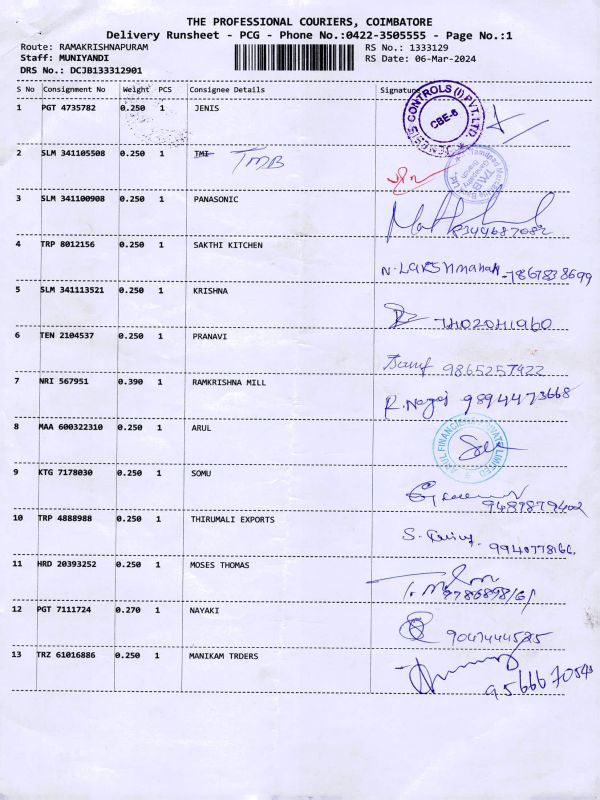 THE PROFESSIONAL COURIERS, COIMBATORE
Delivery Runsheet - PCG - Phone No.:0422-3505555 - Page No.:1
Route: RAMAKRISHNAPURAM RS No.: 1333129
Staff: MUNIYANDI RS Date: 06-Mar-2024
DRS No.: DCJB133312901
S No Consignment No Weight PCS Consignee Details Signature
1 PGT 4735782 0.250 1 JENIS
CONTROLS (I) PVT. LTD.
CBE-6
2 SLM 341105508 0.250 1 TMI TMB
3 SLM 341100908 0.250 1 PANASONIC
4 TRP 8012156 0.250 1 SAKTHI KITCHEN
N. LAKSHMANAN -7867838699
5 SLM 341113521 0.250 1 KRISHNA
6 TEN 2104537 0.250 1 PRANAVI
9865257422
7 NRI 567951 0.390 1 RAMKRISHNA MILL
R. Nagaj 9894473668
8 MAA 600322310 0.250 1 ARUL
9 KTG 7178030 0.250 1 SOMU
9487879402
10 TRP 4888988 0.250 1 THIRUMALI EXPORTS
11 HRD 20393252 0.250 1 MOSES THOMAS
12 PGT 7111724 0.270 1 NAYAKI
13 TRZ 61016886 0.250 1 MANIKAM TRDERS